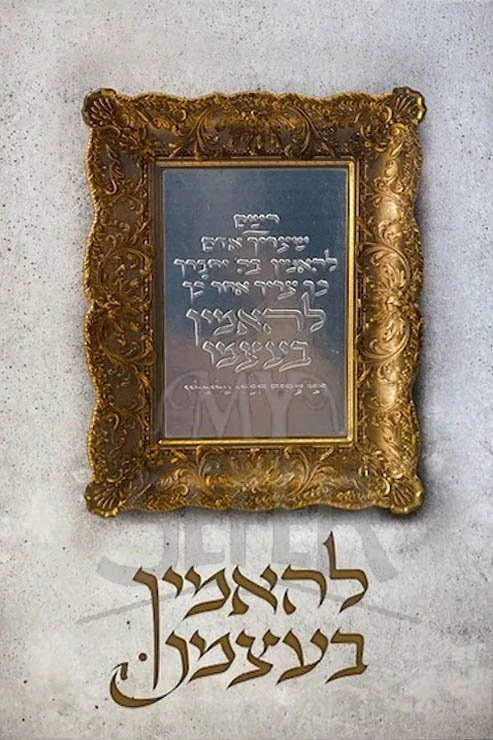 כשם
שצריך אדם
להאמין בה׳ יתברך
כך צריך אחר כך
להאמין
בעצמו
MY
SEFER
להאמין
בעצמו